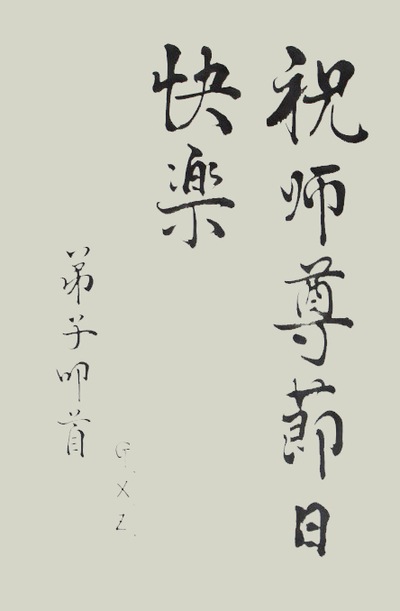 祝师尊節日
快樂
弟子叩首